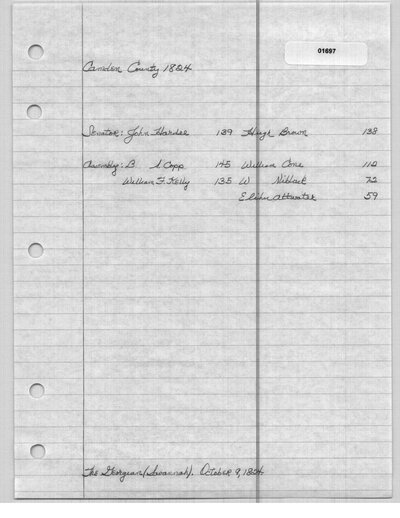 01697
Camden County 1824
Senator: John Hardee 139 Hugh Brown 138
Assembly: B S Copp 145 William Cone 110
William F. Kelly 135 W Niblack 72
Elihu Attwater 59
The Georgian (Savannah). October 9, 1824